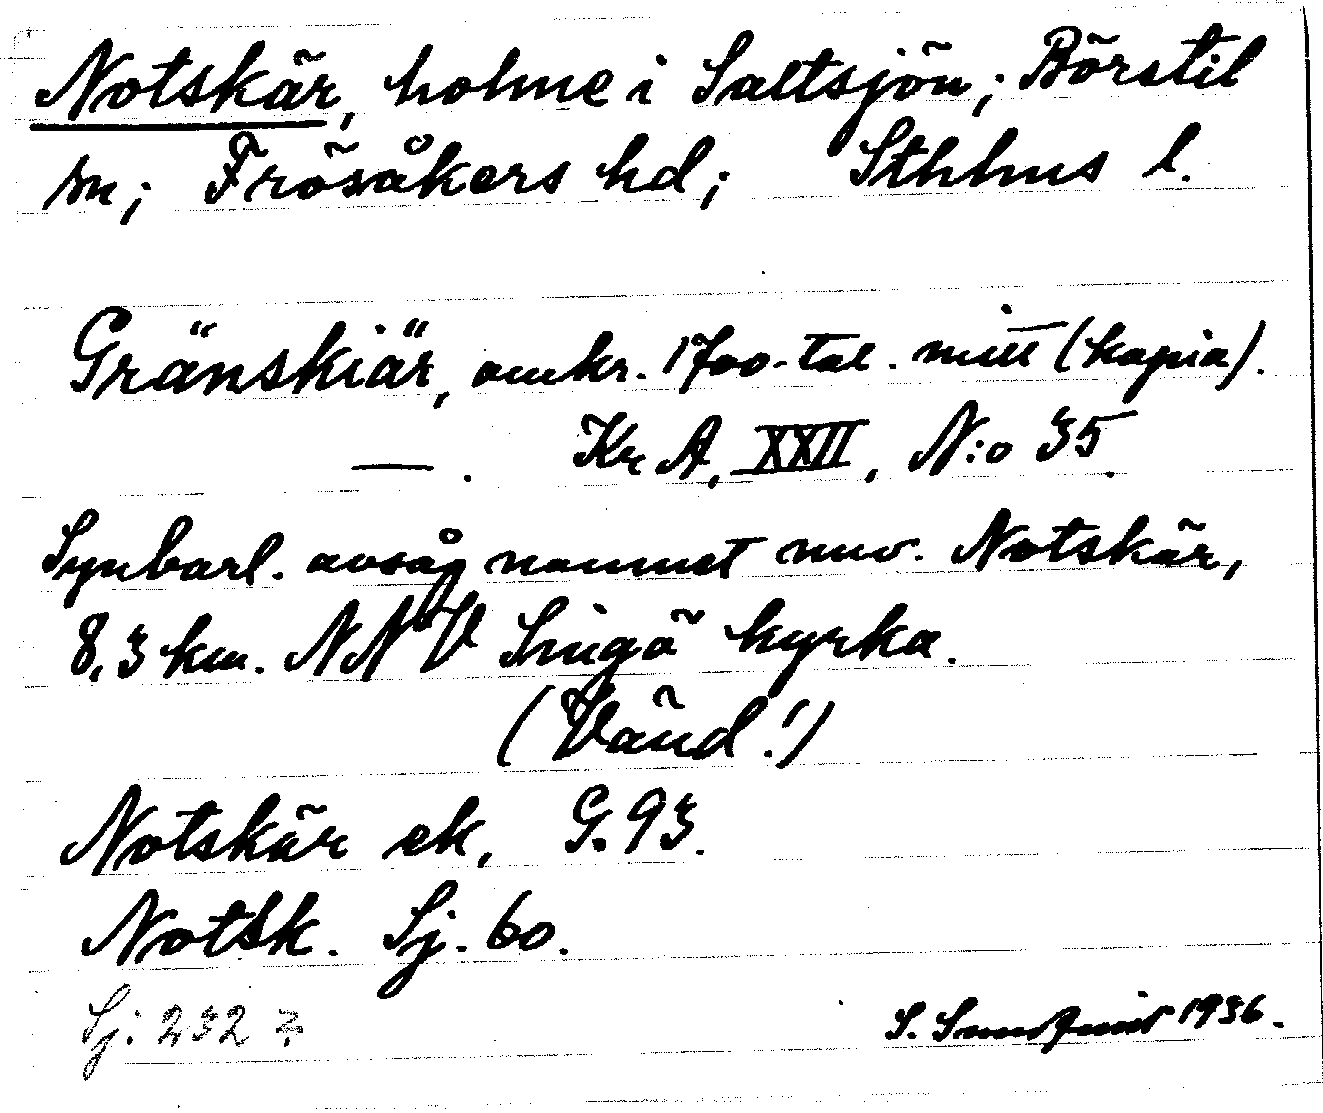 Notskär, holme i Saltsjön; Börstil
sn; Frösåkers hd; Sthlms l.
Gränskiär, omkr. 1700-tal. mitt (kopia).
—. Kr A, XXII, N:o 35.
Synbarl. avsåg namnet nuv. Notskär,
8,3 km. NNV Singö kyrka.
(Vänd!)
Notskär ek. G. 93.
Notsk. Sj. 60.
Sj. 232
S. 1936.